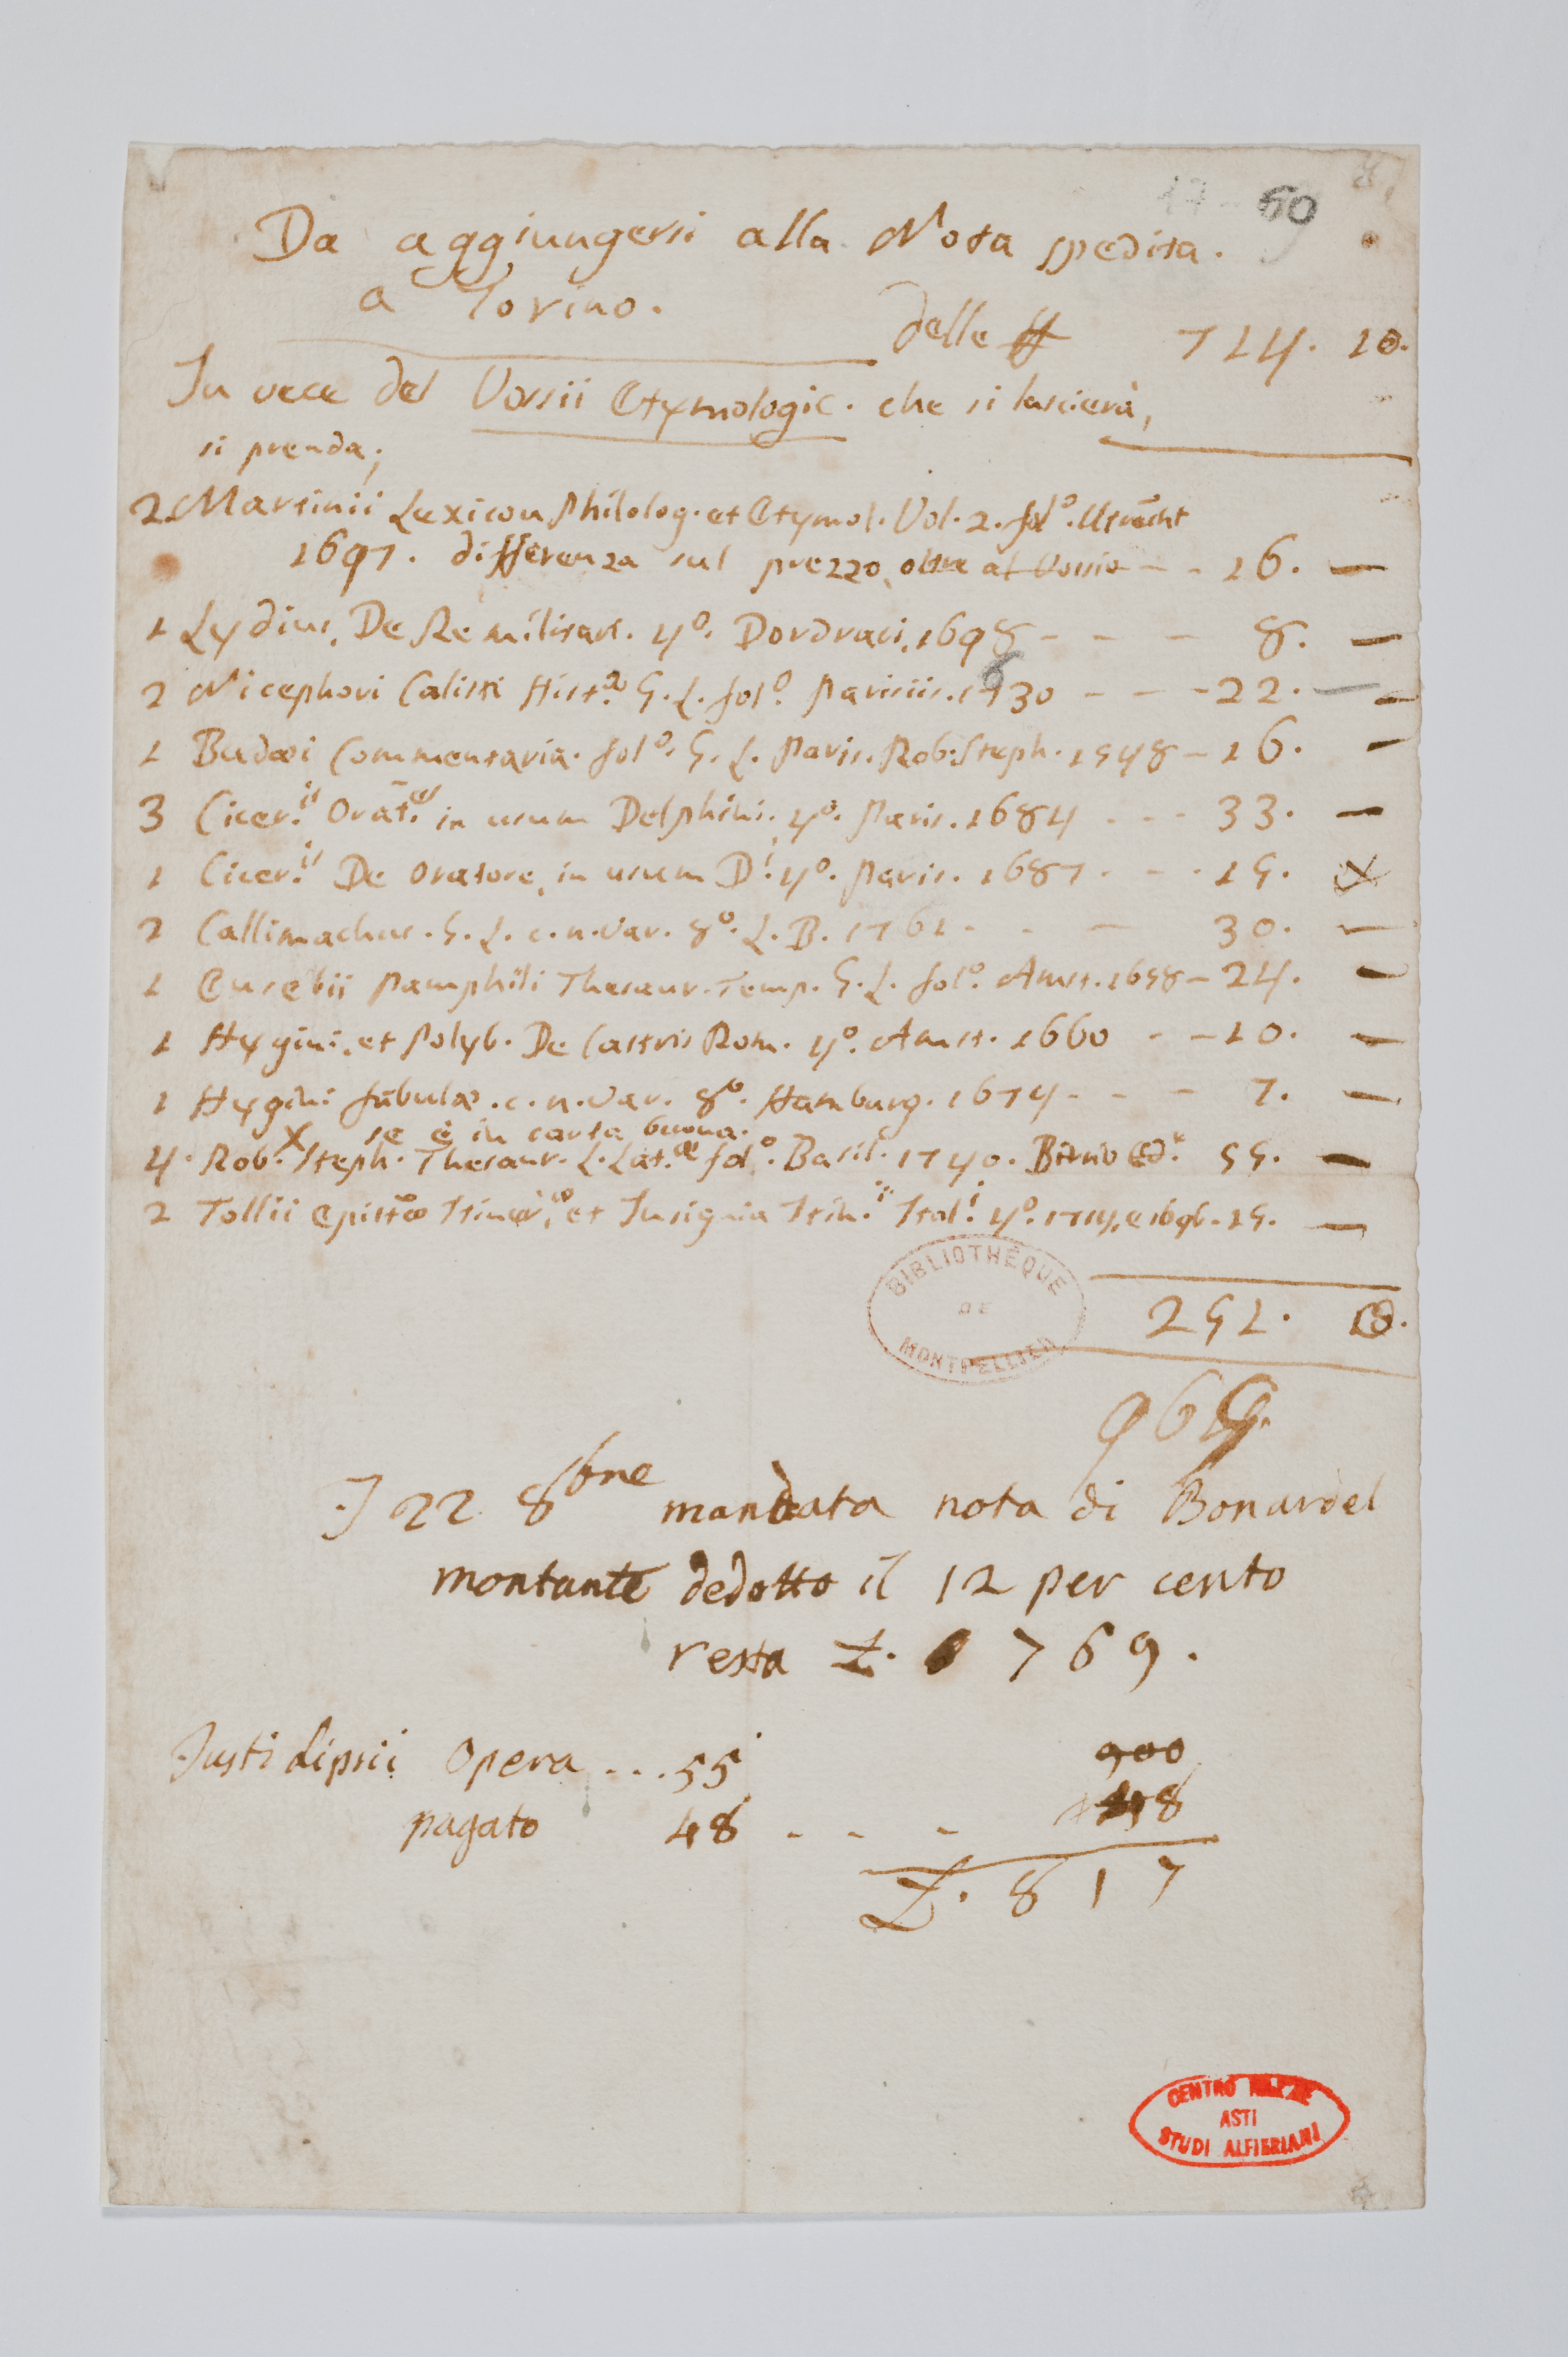 17 - 60
Da aggiungersi alla Nota spedita.
a Torino.
delle ₶ 714. 10.
In vece del Vossii Etymologic. che si lascierà,
si prenda;
2 Martinii Lexicon Philolog. et Etymol. Vol. 2. folº. Utrecht
1697. differenza sul prezzo, oltre al Vossio - - 16. —
1 Lydius, De Re militari. 4º. Dordraci, 1698 - - - 8. —
2 Nicephori Calisti Hist.ª G. L. folº. Parisiis. 1630 - - - 22. —
1 Budæi Commentaria. folº. G. L. Paris. Rob. Steph. 1548 - 16. —
3 Cicer.ⁱˢ Orat.ᵉˢ in usum Delphini. 4º. Paris. 1684 - - - 33. —
1 Cicer.ⁱˢ De Oratore, in usum D.ⁱ 4º. Paris. 1687 - - - 15. X
2 Callimachus. G. L. c. n. var. 8º. L. B. 1761 - - - 30. —
1 Eusebii Pamphili Thesaur. Temp. G. L. folº. Amst. 1658 - 24. —
1 Hygini, et Polyb. De Castris Rom. 4º. Amst. 1660 - - 10. —
1 Hygini fabulæ. c. n. var. 8º. Hamburg. 1674 - - - 7. —
X se è in carta buona.
4. Rob. Steph. Thesaur. L. Lat.æ folº. Basil. 1740. Ed.ʳ 55. —
2 Tollii Epistæ Itiner. et Insignia Itin.ⁱⁱ Ital.ⁱ 4º. 1714, e 1696 - 15. —
BIBLIOTHÈQUE
DE
MONTPELLIER
251. 10.
965.
I 22 8bre mandata nota di Bonardel
montante dedotto il 12 per cento
resta £. 769.
Justi Lipsii Opera ... 55 900
pagato 48 - - - 48
£. 817
CENTRO NAZ.LE
ASTI
STUDI ALFIERIANI